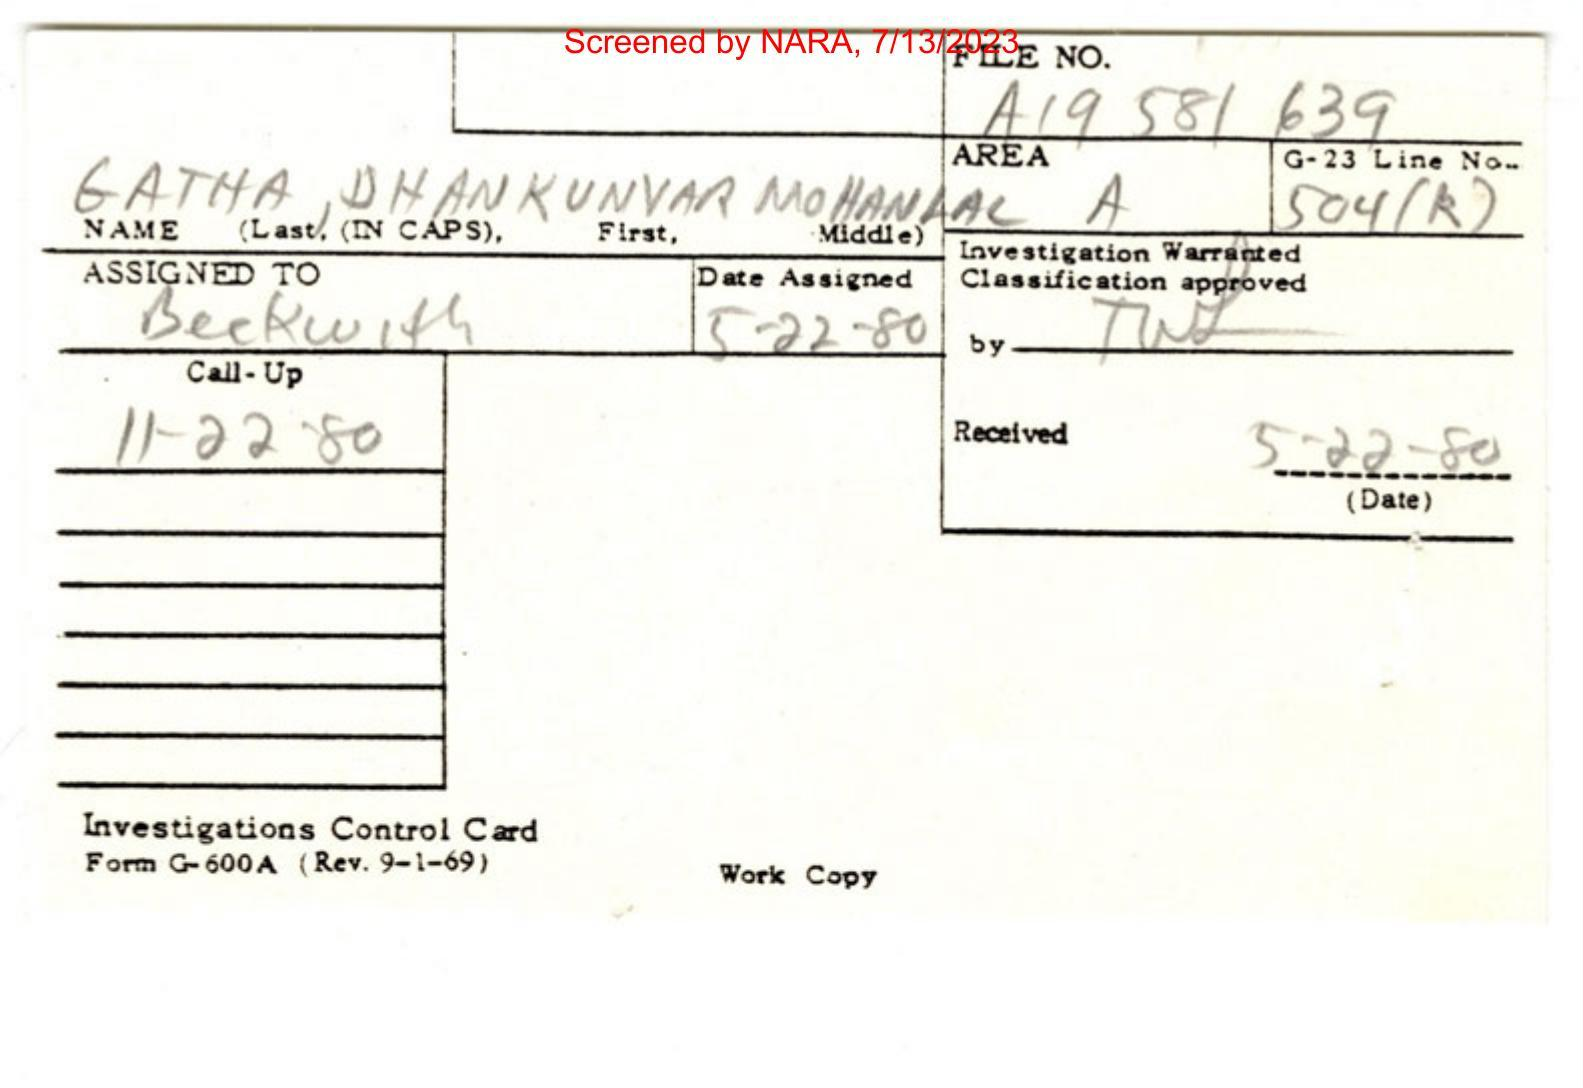 Screened by NARA, 7/13/2023
FILE NO.
A19 581 639
AREA
A
G-23 Line No.
504(R)
GATHA, DHANKUNVAR MOHANLAL
NAME (Last, (IN CAPS), First, Middle)
ASSIGNED TO
Beckwith
Date Assigned
5-22-80
Investigation Warranted
Classification approved
by
Call-Up
11-22-80
Received
5-22-80
(Date)
Investigations Control Card
Form G-600A (Rev. 9-1-69)
Work Copy